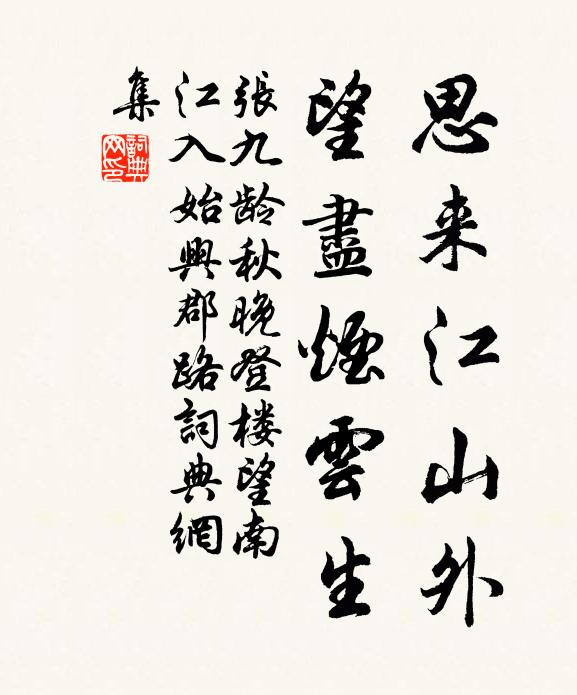 思来江山外
望盡煙雲生
張九齡秋晚登楼望南
江入始興郡路詞典網
集
詞典網印